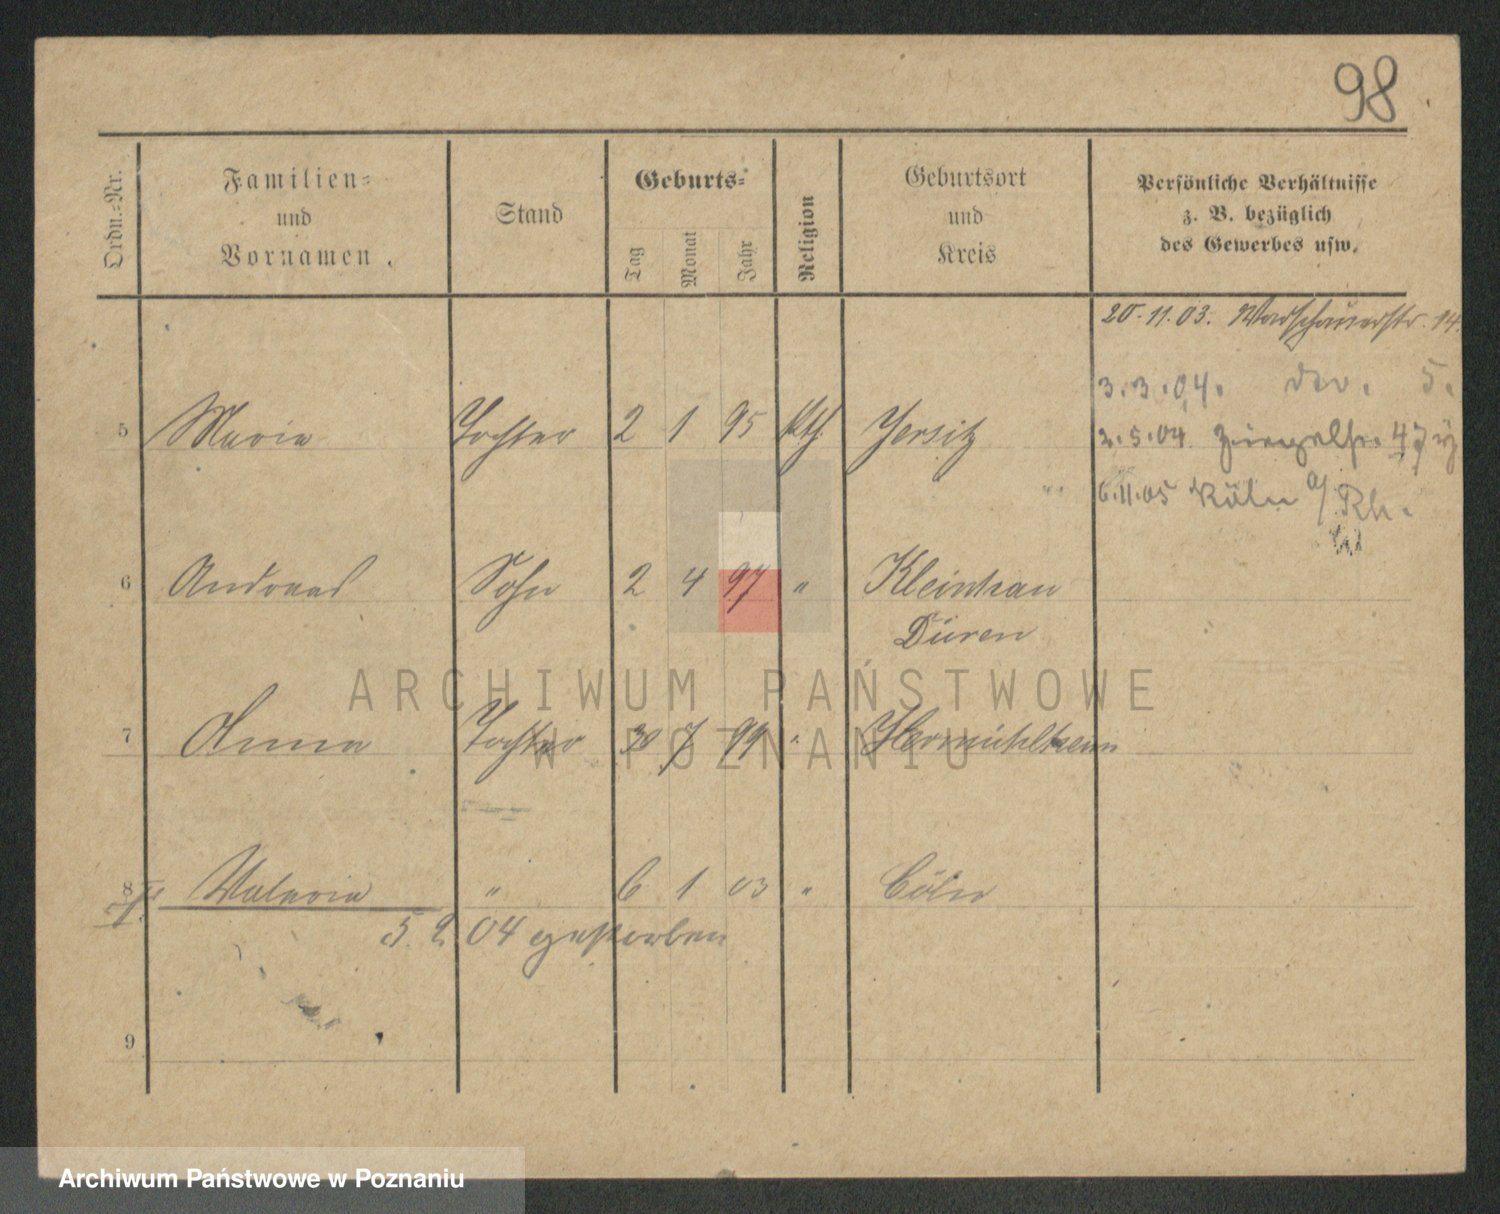 98
Ordn.-Nr.
Familien-
und
Vornamen.
Stand
Geburts-
Tag
Monat
Jahr
Religion
Geburtsort
und
Kreis
Persönliche Verhältnisse
z. B. bezüglich
des Gewerbes usw.
20.11.03. Warschauerstr. 14.
3.3.04. 5.
5 Maria Tochter 2 1 95 kth. Jersitz
2.5.04
6.11.05 Köln a/Rh.
6 Andreas Sohn 2 4 97 " Kleinhau
Düren
7 Anna Tochter 30 7 99 " Hermühlheim
8 Valeria " 6 1 03 " Cöln
5. 2. 04 gestorben
9
ARCHIWUM PAŃSTWOWE
W POZNANIU
Archiwum Państwowe w Poznaniu